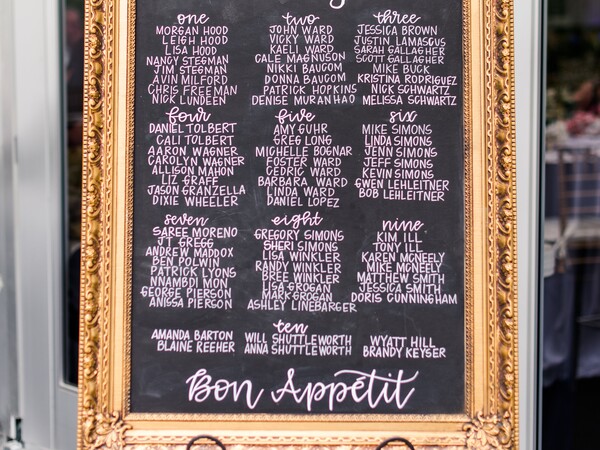 one
MORGAN HOOD
LEIGH HOOD
LISA HOOD
NANCY STEGMAN
JIM STEGMAN
AVIN MILFORD
CHRIS FREEMAN
NICK LUNDEEN
two
JOHN WARD
VICKY WARD
KAELI WARD
CALE MAGNUSON
NIKKI BAUGOM
DONNA BAUCOM
PATRICK HOPKINS
DENISE MURANHAO
three
JESSICA BROWN
JUSTIN LAMASCUS
SARAH GALLAGHER
SCOTT GALLAGHER
MIKE BUCK
KRISTINA RODRIGUEZ
NICK SCHWARTZ
MELISSA SCHWARTZ
four
DANIEL TOLBERT
CALI TOLBERT
AARON WAGNER
CAROLYN WAGNER
ALLISON MAHON
LIZ GRAFF
JASON GRANZELLA
DIXIE WHEELER
five
AMY GUHR
GREG LONG
MICHELLE BOGNAR
FOSTER WARD
CEDRIC WARD
BARBARA WARD
LINDA WARD
DANIEL LOPEZ
six
MIKE SIMONS
LINDA SIMONS
JENN SIMONS
JEFF SIMONS
KEVIN SIMONS
GWEN LEHLEITNER
BOB LEHLEITNER
seven
SAREE MORENO
JT GREGG
ANDREW MADDOX
BEN POLWIN
PATRICK LYONS
NNAMBDI MON
GEORGE PIERSON
ANISSA PIERSON
eight
GREGORY SIMONS
SHERI SIMONS
LISA WINKLER
RANDY WINKLER
BREE WINKLER
LISA GROGAN
MARK GROGAN
ASHLEY LINEBARGER
nine
KIM ILL
TONY ILL
KAREN MCNEELY
MIKE MCNEELY
MATTHEW SMITH
JESSICA SMITH
DORIS CUNNINGHAM
ten
AMANDA BARTON
BLAINE REEHER
WILL SHUTTLEWORTH
ANNA SHUTTLEWORTH
WYATT HILL
BRANDY KEYSER
Bon Appétit